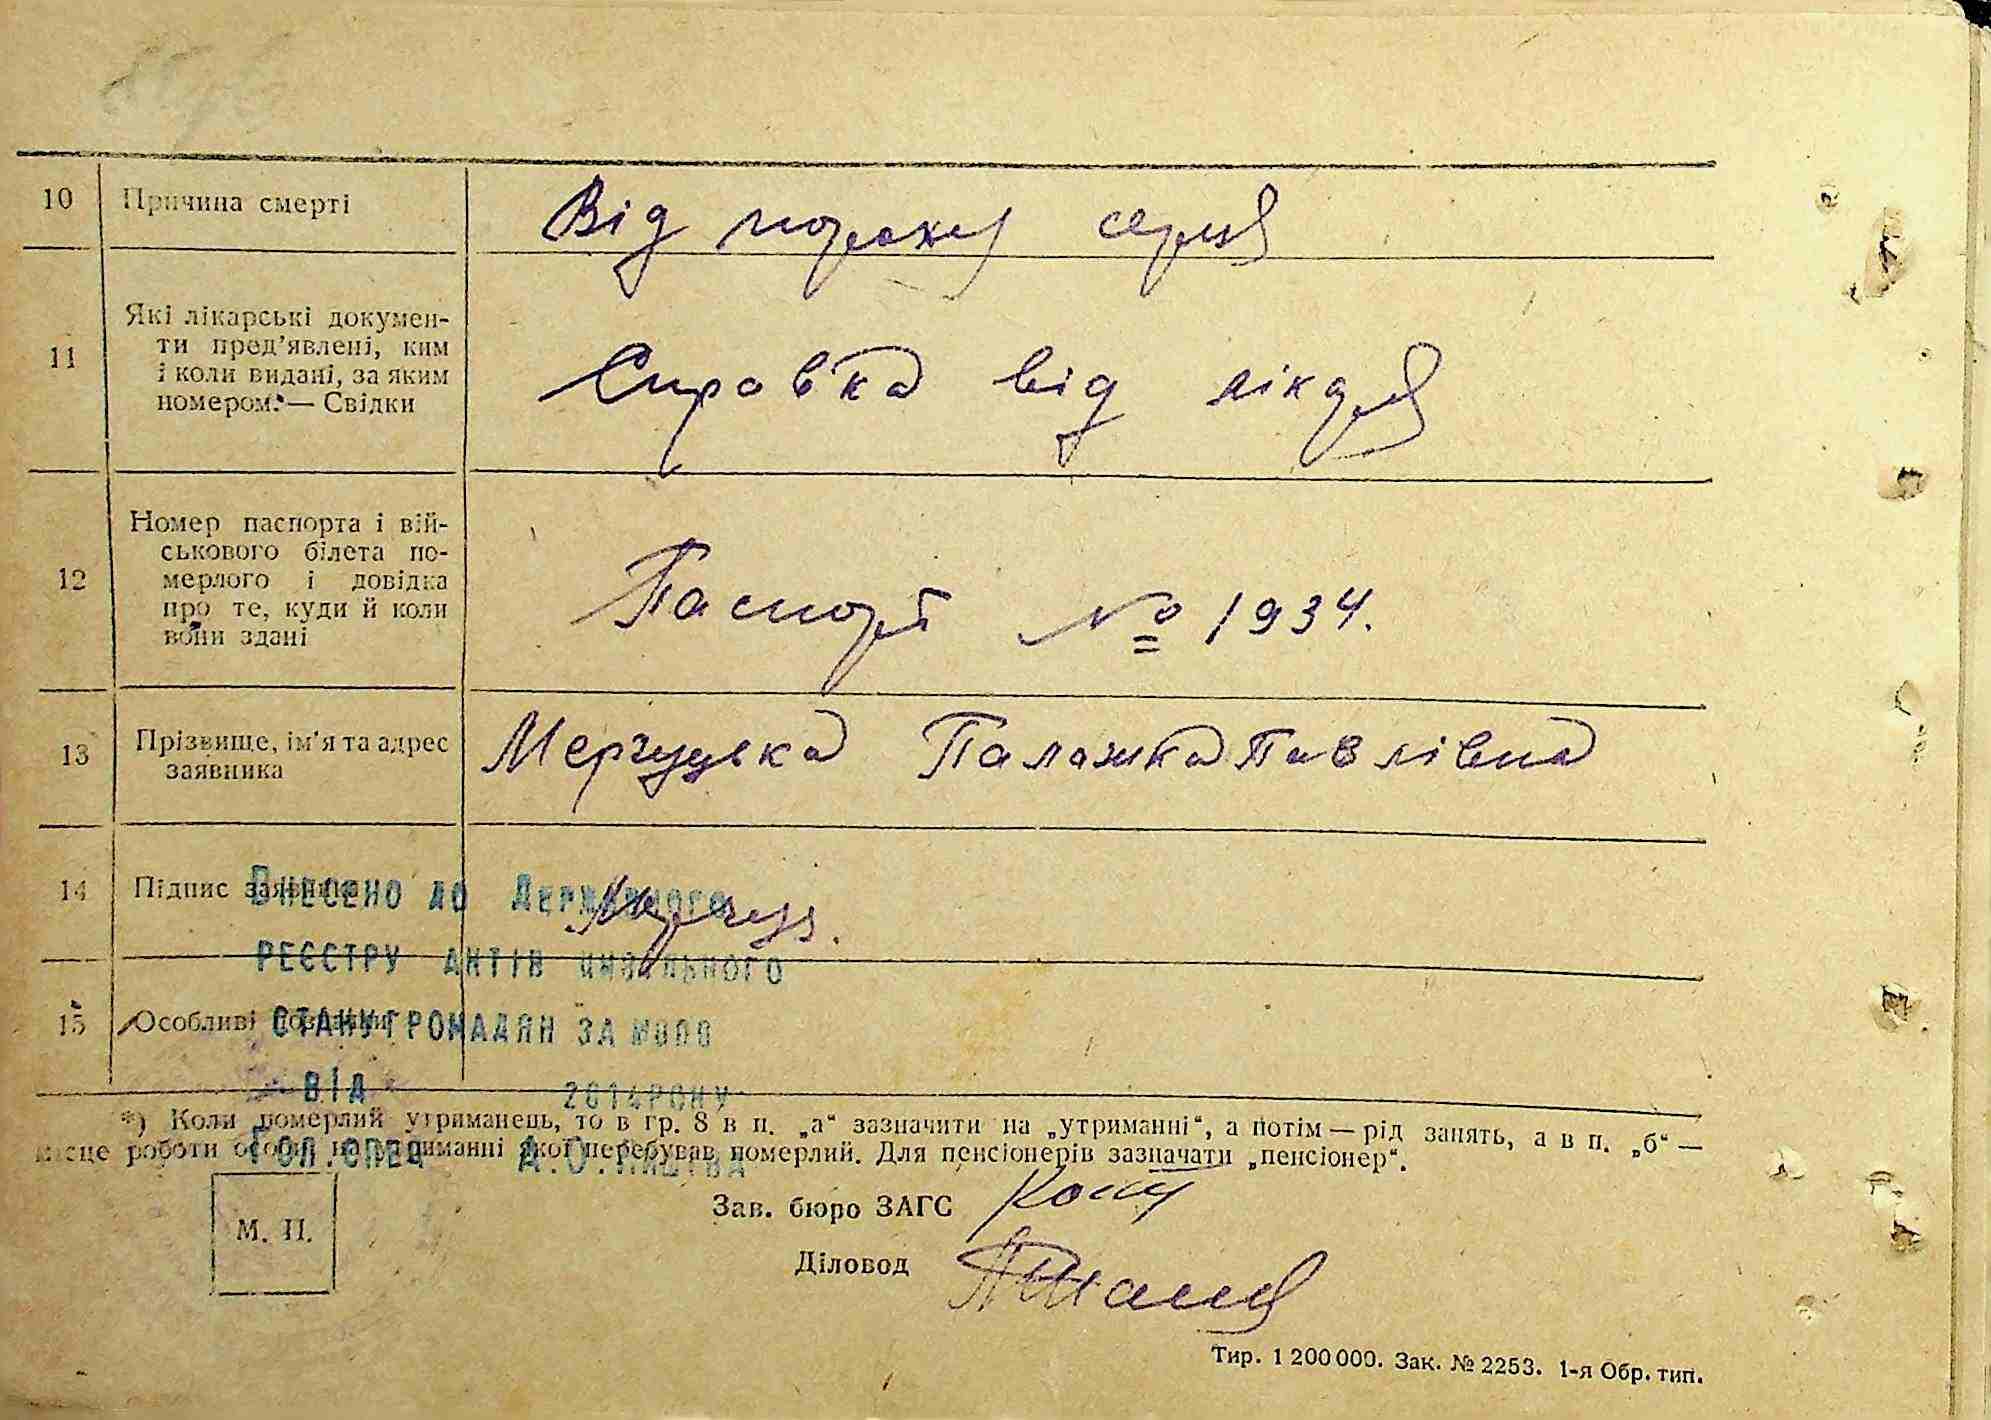 10 Причина смерті Від пороку серця
11 Які лікарські докумен-
ти пред'явлені, ким
і коли видані, за яким
номером.— Свідки
Справка від лікаря
12 Номер паспорта і вій-
ськового білета по-
мерлого і довідка
про те, куди й коли
вони здані
Паспорт № 1934.
13 Прізвище, ім'я та адрес
заявника
Мерчуцька Палажка Павлівна
14 Підпис заявника
Внесено до Державного
реєстру актів цивільного
15 Особливі
стану громадян за №
від 2014 року
*) Коли померлий утриманець, то в гр. 8 в п. „а“ зазначити на „утриманні“, а потім — рід занять, а в п. „б“ —
місце роботи особи, на утриманні якої перебував померлий. Для пенсіонерів зазначати „пенсіонер“.
Гол. спец
М. П.
Зав. бюро ЗАГС
Діловод
Тир. 1 200 000. Зак. № 2253. 1-я Обр. тип.